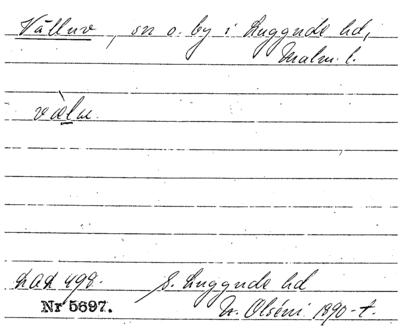 Välluv, sn o. by i Luggude hd,
Malm. l.
vàlu.
LAL 498.    S. Luggude hd
Nr 5697.    N. Olséni 1890-t.